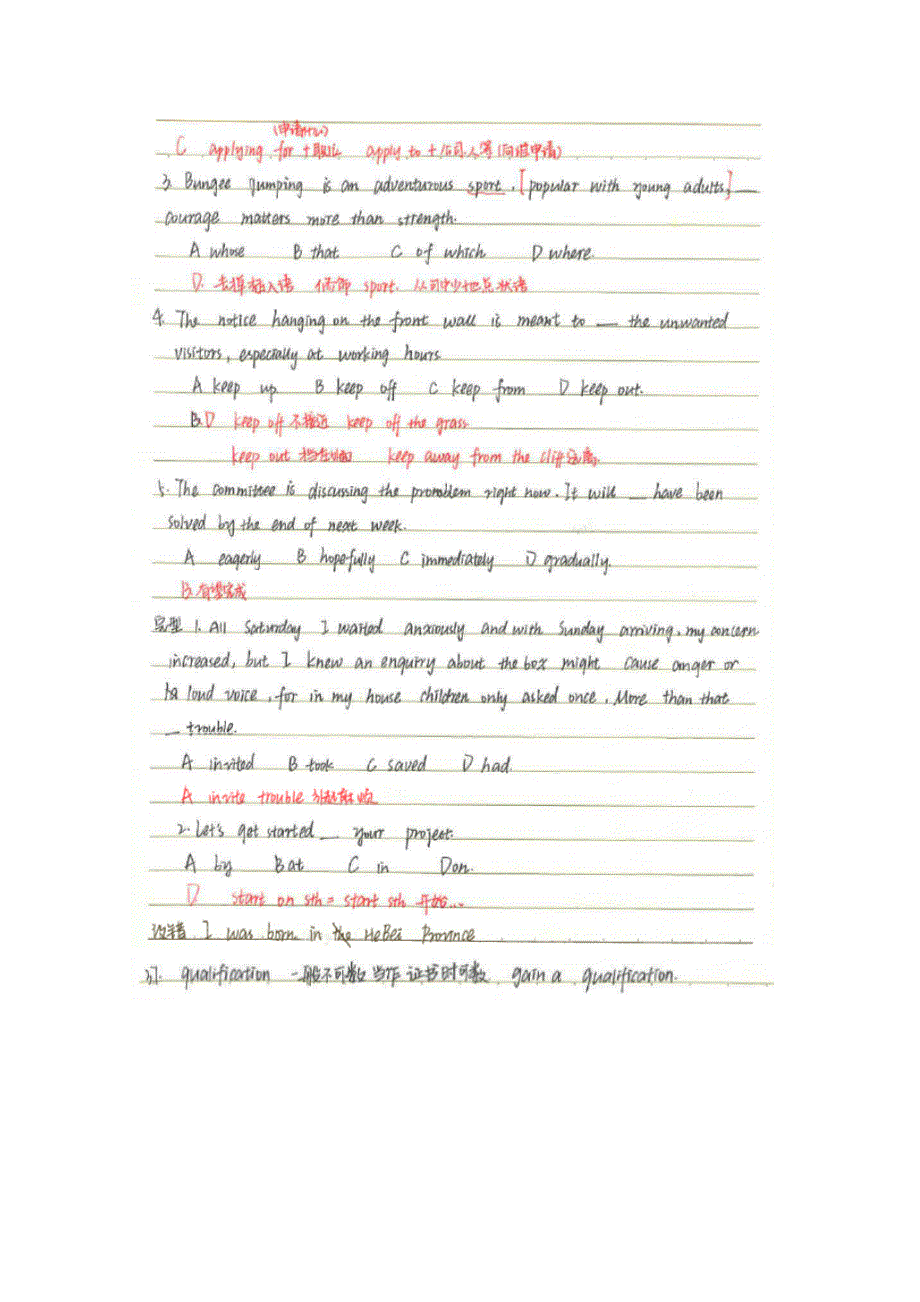 (申请什么)
C applying for + 职位 apply to + 公司人等 (向谁申请)
3. Bungee Jumping is an adventurous sport, [popular with young adults,] __
courage matters more than strength.
A whose B that C of which D where.
D. 去掉插入语 修饰 sport. 从句中少地点状语
4. The notice hanging on the front wall is meant to __ the unwanted
visitors, especially at working hours
A keep up B keep off C keep from D keep out.
B.D keep off 不接近 keep off the grass
keep out 挡在 keep away from the cliff 远离
5. The committee is discussing the promblem right now. It will __ have been
solved by the end of next week.
A eagerly B hopefully C immediately D gradually.
B. 有望完成
完型 1. All Saturday I waited anxiously and with Sunday arriving, my concern
increased, but I knew an enquiry about the box might cause anger or
a loud voice, for in my house children only asked once. More than that
__ trouble.
A invited B took C saved D had.
A invite trouble 引起麻烦
2. Let's get started __ your project.
A by B at C in D on.
D start on sth = start sth 开始...
改错 I was born in the HeBei Province
qualification 一般不可数 当作 证书时可数 gain a qualification.